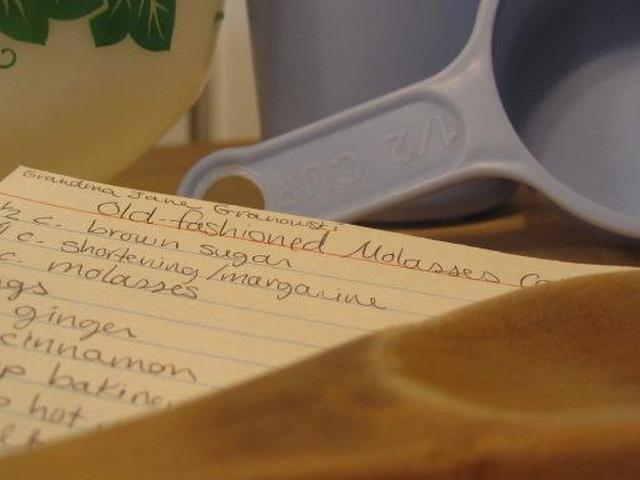 1/2 CUP
Grandma Jane Granowski
Old-fashioned Molasses
1/2 c. brown sugar
c. shortening/margarine
c. molasses
ginger
cinnamon
hot